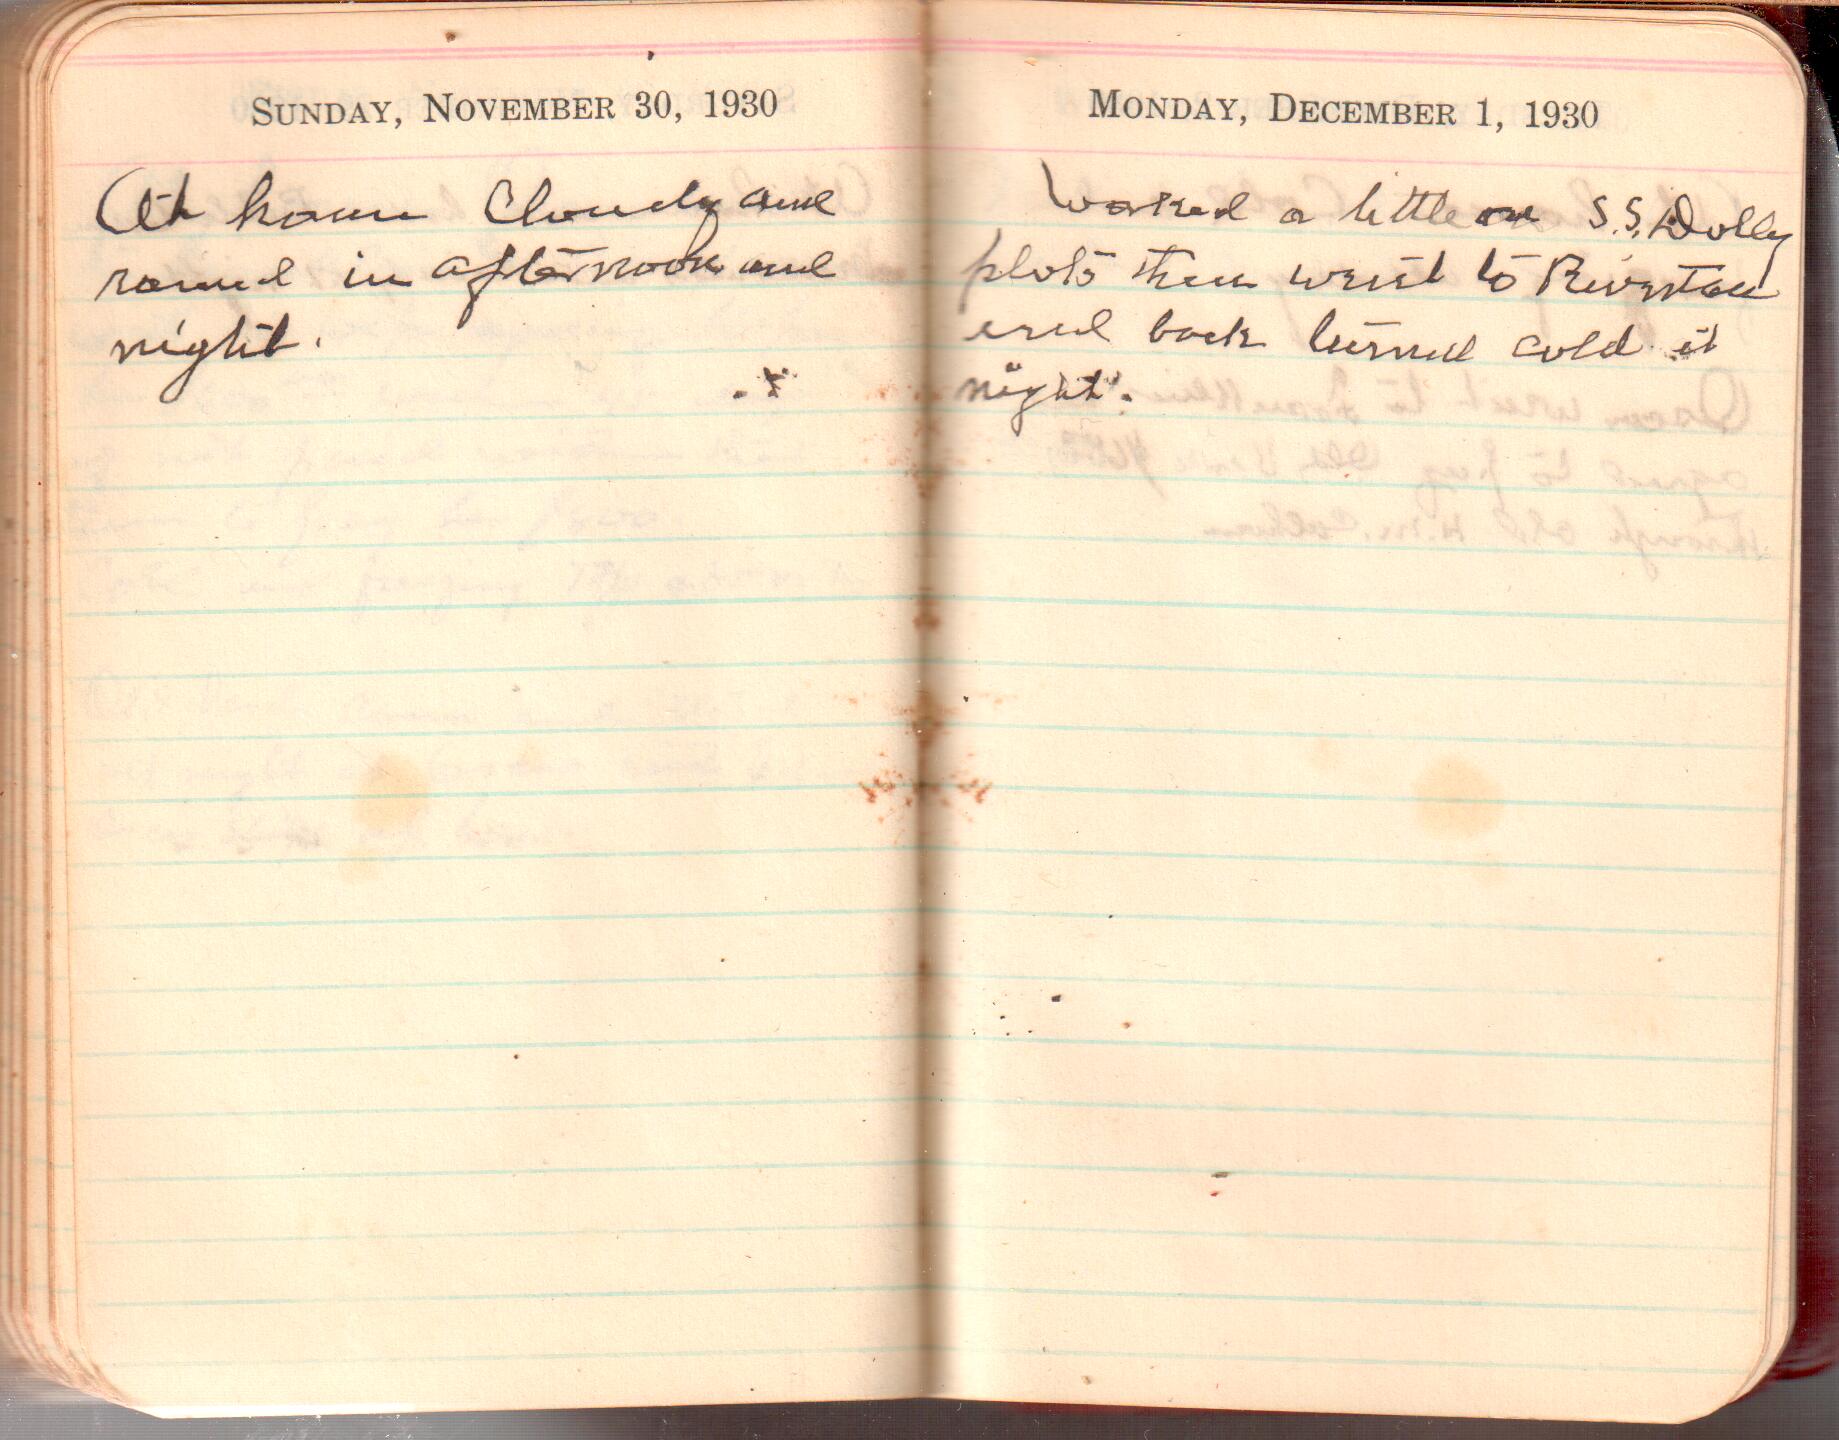 SUNDAY, NOVEMBER 30, 1930
At home Cloudy and
rained in afternoon and
night.
MONDAY, DECEMBER 1, 1930
Worked a little on S.S. Dolly
plots then went to Riverton
and back turned cold at
night.